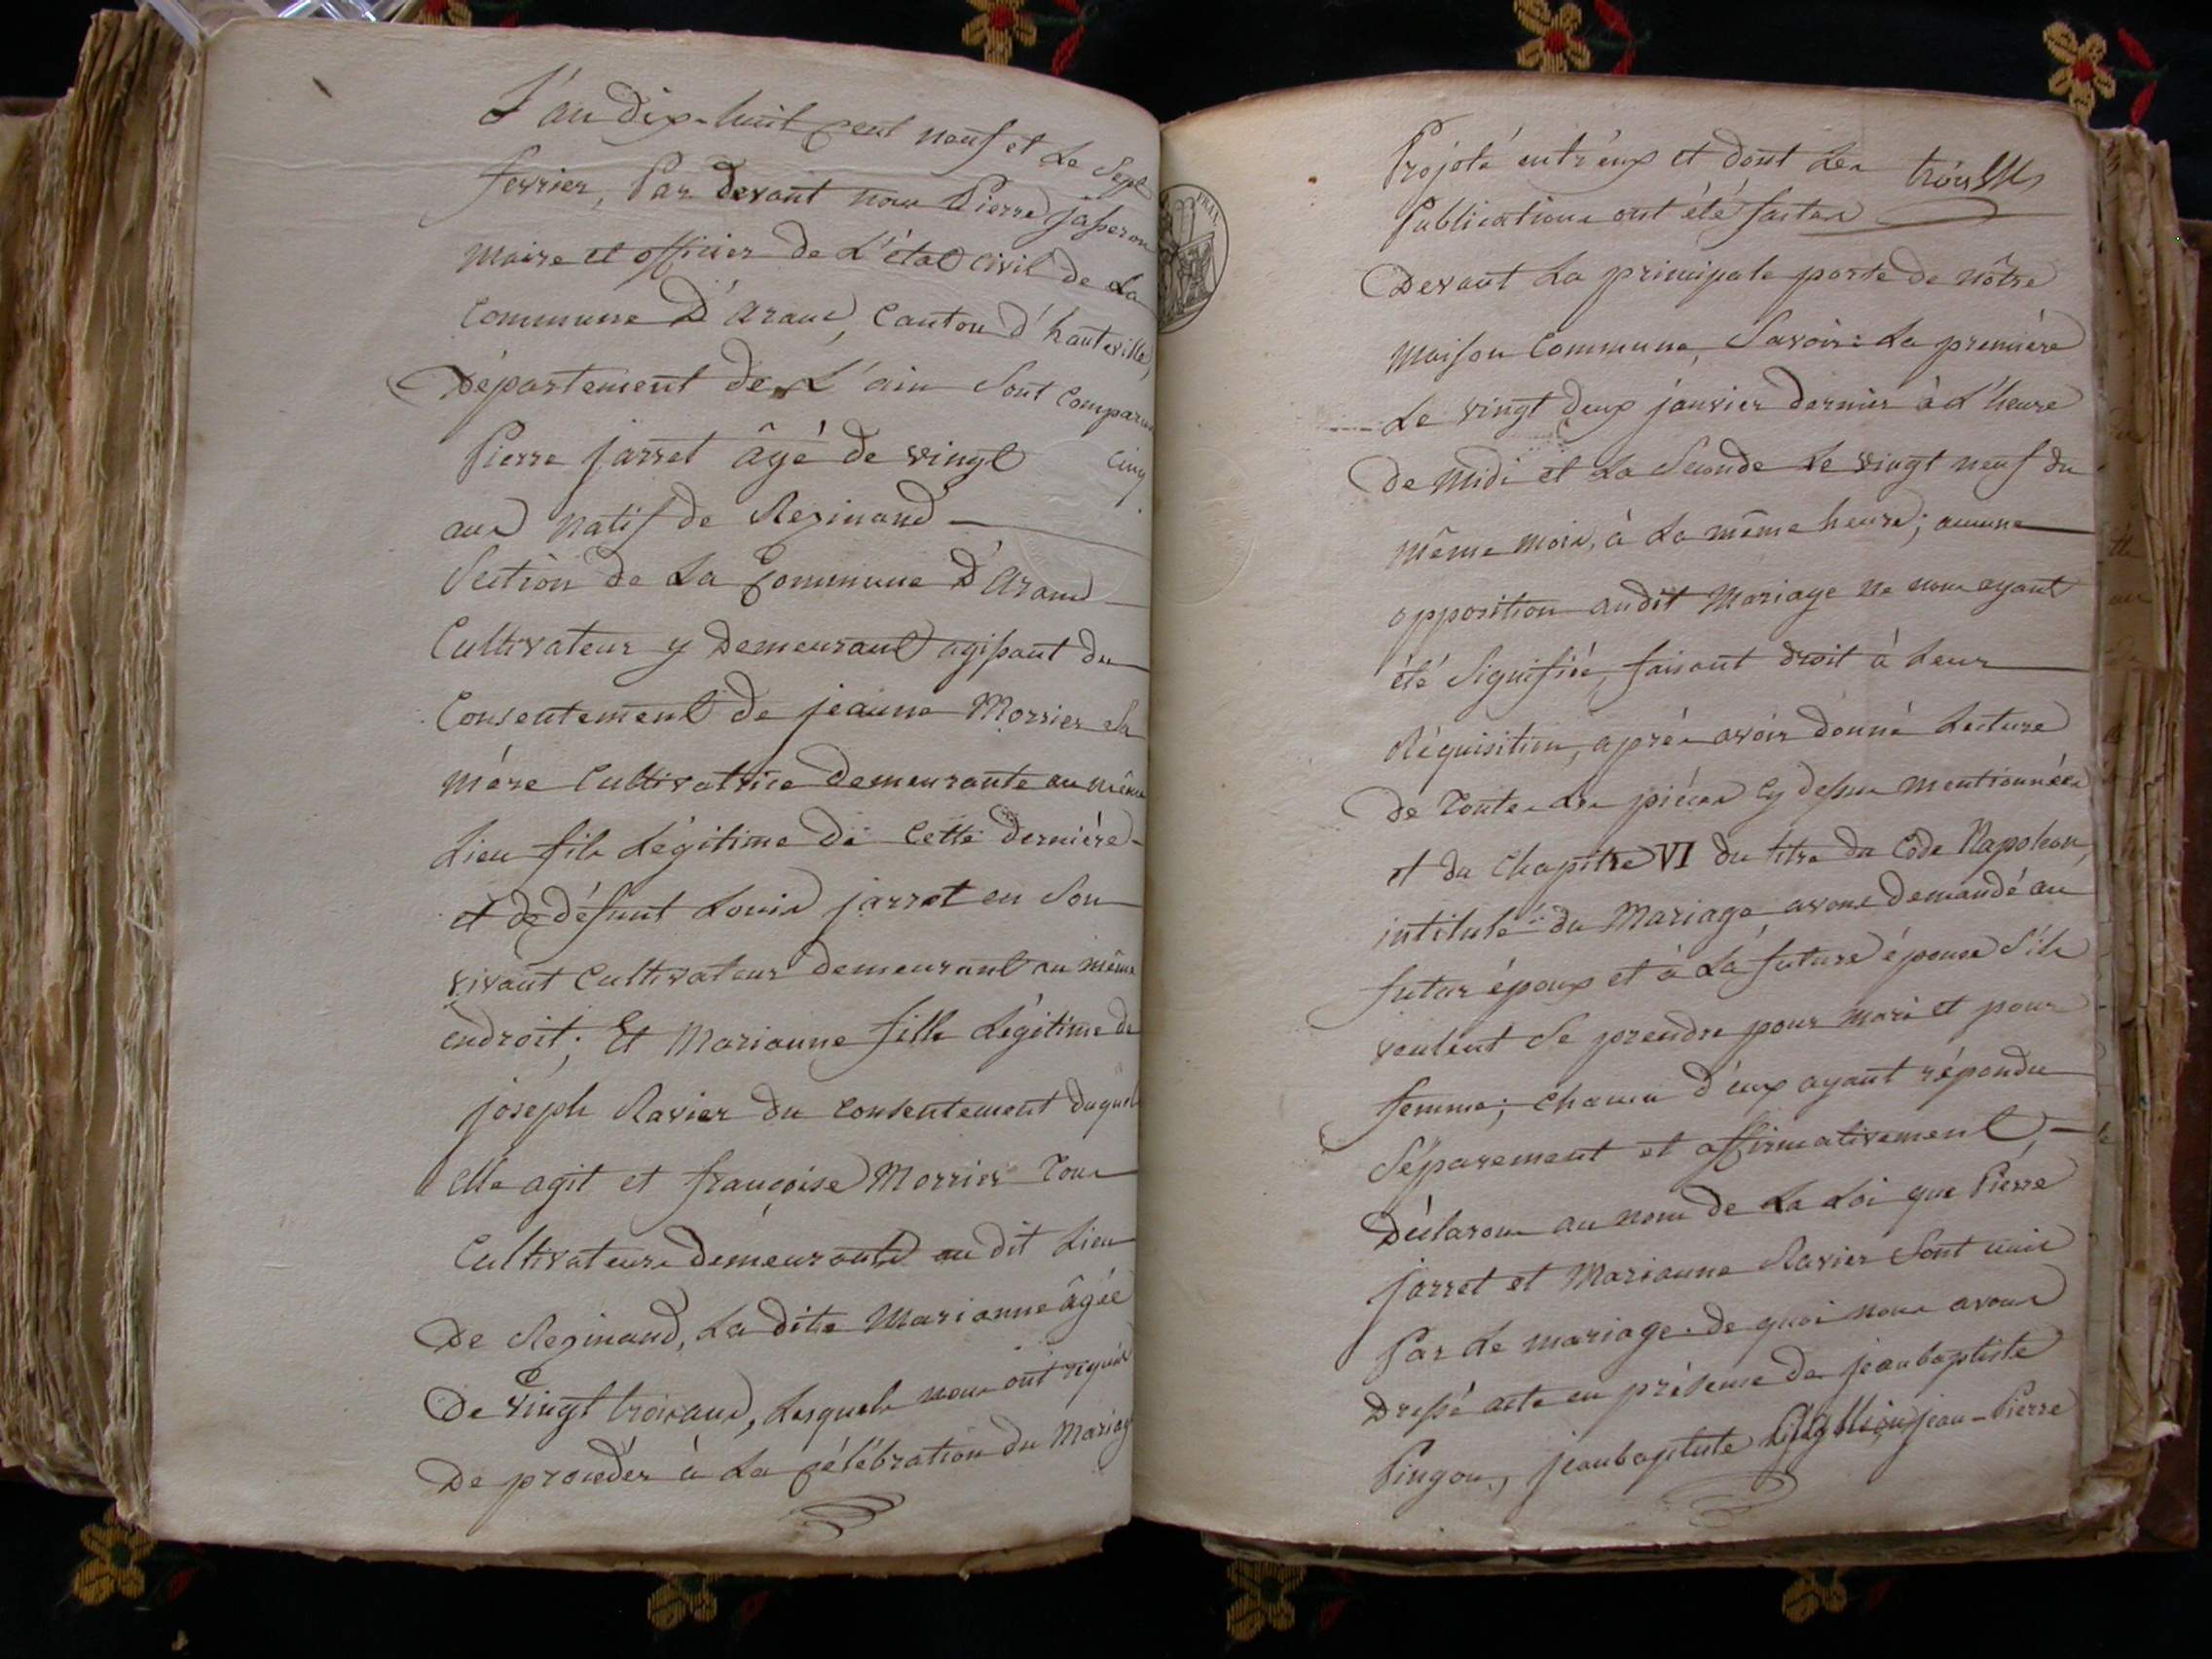 L'an dix-huit cent neuf et Le Sept
fevrier, Par devant nous Pierre jasseron
Maire et officier de L'état civil de La
Commune D'Aranc, Canton d'hauteville,
Département de L'ain Sont Comparus
Pierre jarret âgé de vingt cinq
ans Natif de Rezinand
Section de La Commune D'Aranc
Cultivateur y Demeurant agissant du
Consentement de jeanne Morrier Sa
mére Cultivatrice demeurante au même
Lieu fils Légitime de Cette derniére
et de défunt Louis jarret en Son
vivant Cultivateur demeurant au même
endroit; Et Marianne fille Légitime de
joseph Ravier du Consentement duquel
elle agit et françoise Morrier Tous
Cultivateurs demeurants au dit Lieu
De Rezinand, La dite Marianne âgée
De vingt trois ans, Lesquels nous ont requis
De procéder à La célébration du Mariage
Projeté entr'eux et dont Les
Publications ont été faites
Devant La principale porte de nôtre
Maison Commune, Savoir: La premiére
Le vingt deux janvier dernier à L'heure
De Midi et La Seconde Le vingt neuf du
même mois, à La même heure; aucune
opposition audit Mariage ne nous ayant
été Signifiée, faisant droit à Leur
Réquisition, aprés avoir donné Lecture
De Toutes Les piéces Cy dessus Mentionnées
et du Chapitre VI du titre du Code Napoleon,
intitulé: du Mariage, avons Demandé au
futur époux et à La future épouse S'ils
veulent Se prendre pour mari et pour
femme; chacun d'eux ayant répondu
Séparement et affirmativement,
Déclarons au nom de La Loi que Pierre
jarret et Marianne Ravier Sont unis
Par Le mariage. de quoi nous avons
Dressé acte en présence de jean baptiste
Pingon, jean baptiste jean-Pierre